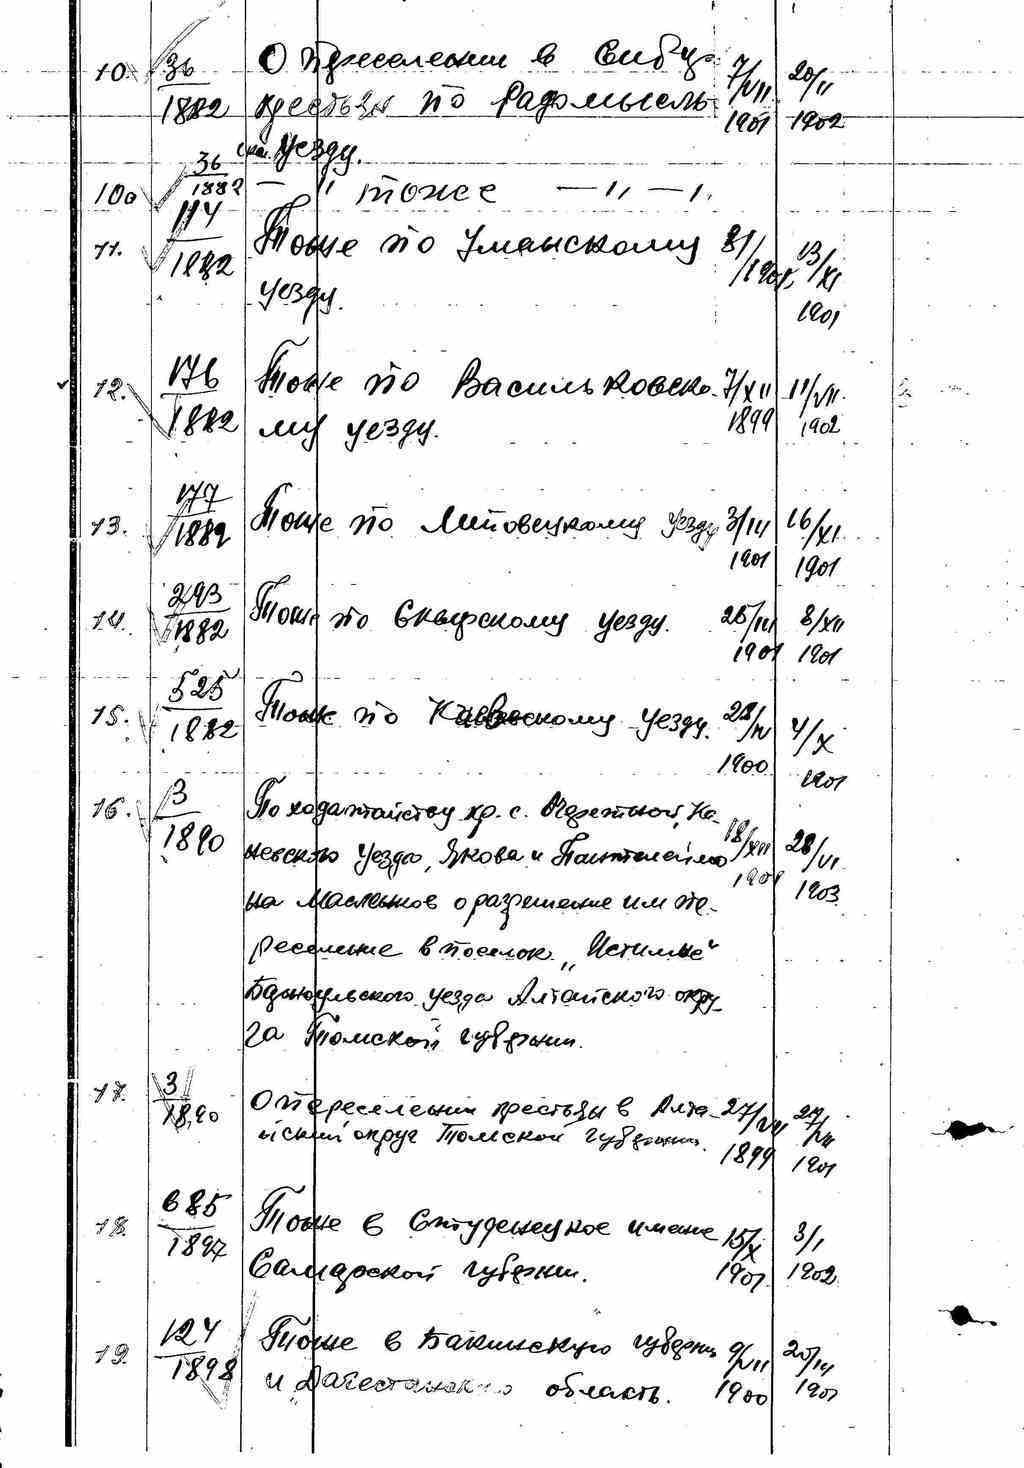 10. 36 О переселении в Сибирь 7/VII 20/II
1882 крестьян по Радомысль- 1901 1902
скому уезду.
36
10а 1882 — " тоже — " — " .
114
11. 1882 Тоже по Уманскому 8/I 1901 13/XI
уезду. 1901
12. 176 Тоже по Васильковско- 7/XII 11/VII
1882 му уезду. 1899 1902
177
13. 1882 Тоже по Липовецкому уезду 3/IV 16/XI
1901 1901
293
14. 1882 Тоже по Сквирскому уезду. 25/IV 8/XII
1901 1901
525
15. 1882 Тоже по Киевскому уезду. 28/IV 4/X
1900 1901
16. 3 По ходатайству кр. с. Очеретной, Ка-
1890 невского уезда, Якова и Пантелеймо 18/XII 28/VI
на Масленков о разрешение им пе- 1901 1903
реселение в поселок „Истимье"
уезда Алтайского окру-
га Томской губернии.
17. 3
1890 О переселении крестьян в Алта- 27/VII 27/VII
йский округ Томской губернии. 1899 1901
685
18. 1897 Тоже в Студенецкое имение 15/X 3/I
Самарской губернии. 1901 1902
19. 124 Тоже в Бакинскую губернию 9/VII 20/IV
1898 и Дагестанскую область. 1900 1901